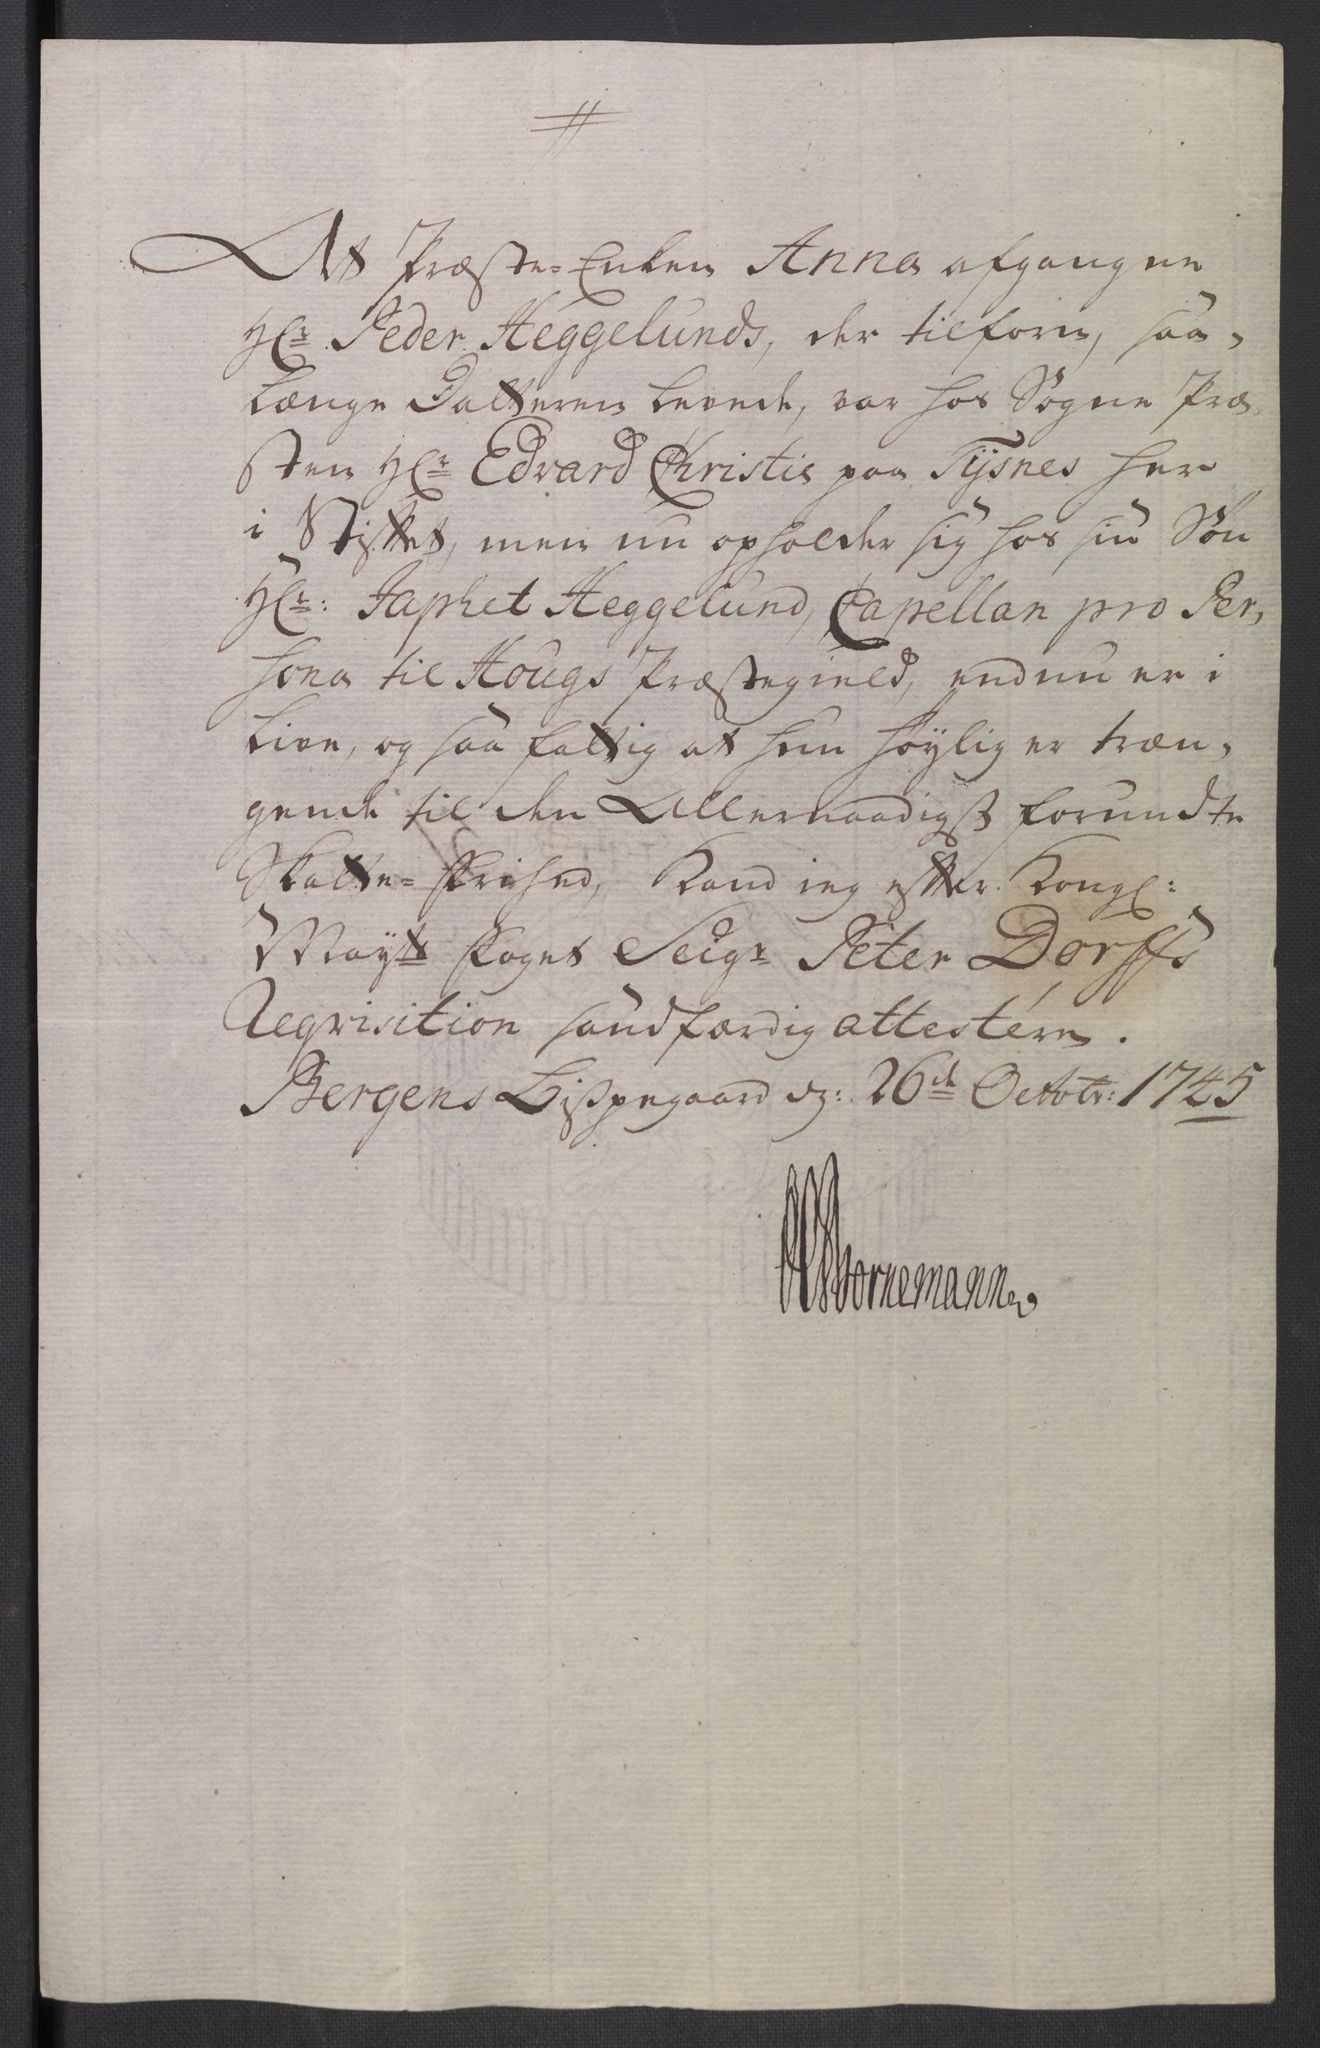 At Præste-Enken Anna afgangne
Hr: Peder Heggelunds, der tilforn, saa-
længe Datteren levede, var hos Sogne Præ-
sten Hr: Edvard Christie paa Tÿsnes her
i Stiftet, men nu opholder sig hos sin Søn
Hr: Japhet Heggelund, Capellan pro Per-
sona til Hougs Præstegield, endnu er i
Live, og saa fattig at hun høylig er træn-
gende til den Allernaadigst forundte
Skatte-Frihed, kand ieg efter Kongl:
Mayts Foget Seigr Peter Dorffs
Reqvisition sandfærdig attestére.
Bergens Bispegaard d: 26de Octobr: 1745
Bornemann